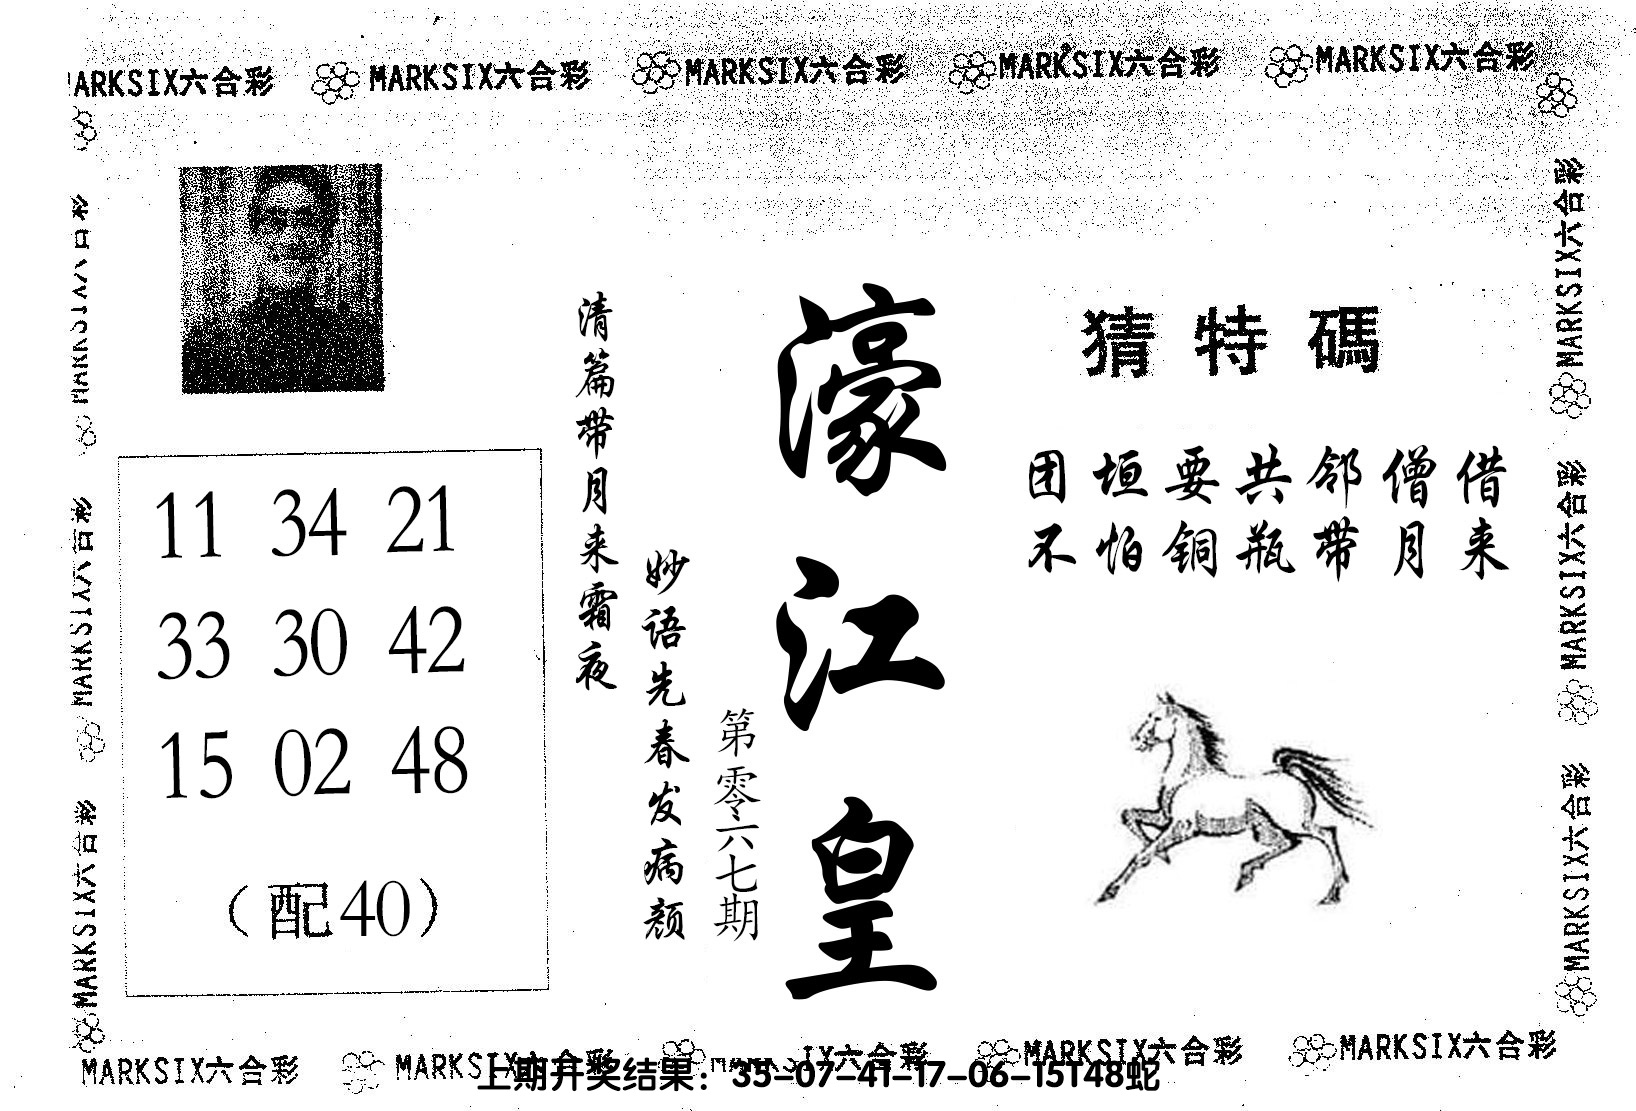 MARKSIX六合彩 MARKSIX六合彩 MARKSIX六合彩 MARKSIX六合彩
猜特碼
团垣要共邻僧借
不怕铜瓶带月来
濠江皇
第零六七期
清篇带月来霜夜
妙语先春发病颜
11 34 21
33 30 42
15 02 48
（配40）
MARKSIX六合彩
MARKSIX六合彩
MARKSIX六合彩
MARKSIX六合彩
MARKSIX六合彩
MARKSIX六合彩 MARKSIX六合彩 MARKSIX六合彩 MARKSIX六合彩
上期开奖结果：35-07-41-17-06-15T48蛇